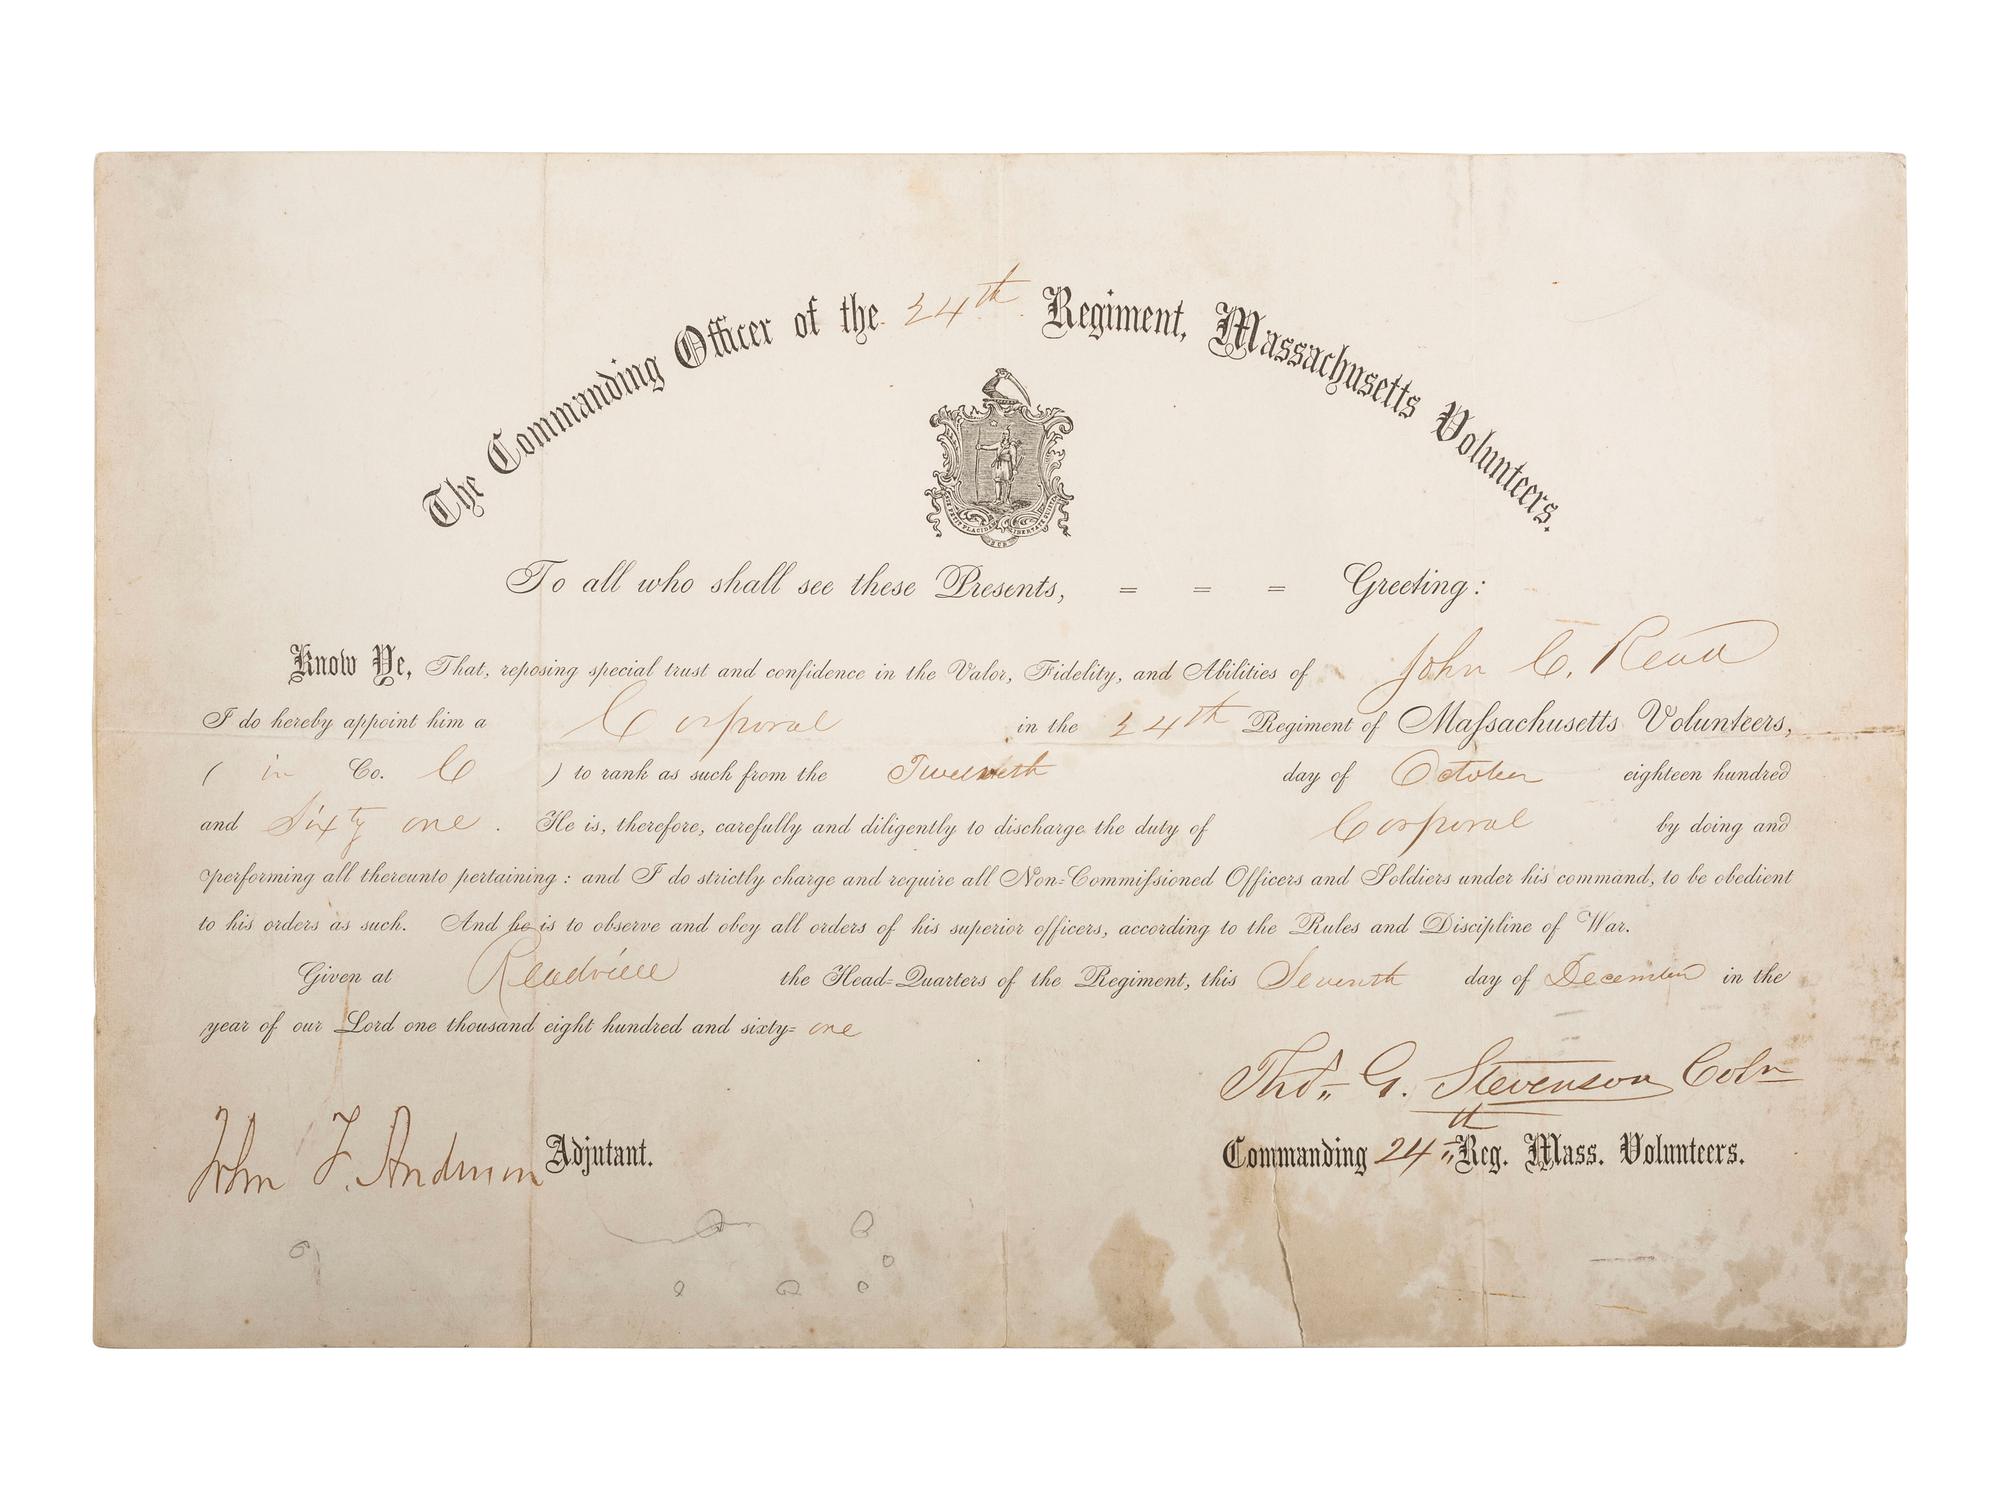 The Commanding Officer of the 24th Regiment, Massachusetts Volunteers.
To all who shall see these Presents, = = = Greeting:
Know Ye, That, reposing special trust and confidence in the Valor, Fidelity, and Abilities of John C. Read
I do hereby appoint him a Corporal in the 24th Regiment of Massachusetts Volunteers,
( in Co. C ) to rank as such from the day of October eighteen hundred
and Sixty one. He is, therefore, carefully and diligently to discharge the duty of Corporal by doing and
performing all thereunto pertaining: and I do strictly charge and require all Non-Commissioned Officers and Soldiers under his command, to be obedient
to his orders as such. And he is to observe and obey all orders of his superior officers, according to the Rules and Discipline of War.
Given at Readville the Head-Quarters of the Regiment, this Seventh day of December in the
year of our Lord one thousand eight hundred and sixty-one
Thos. G. Stevenson Coln
John F. Anderson Adjutant.
Commanding 24th Reg. Mass. Volunteers.